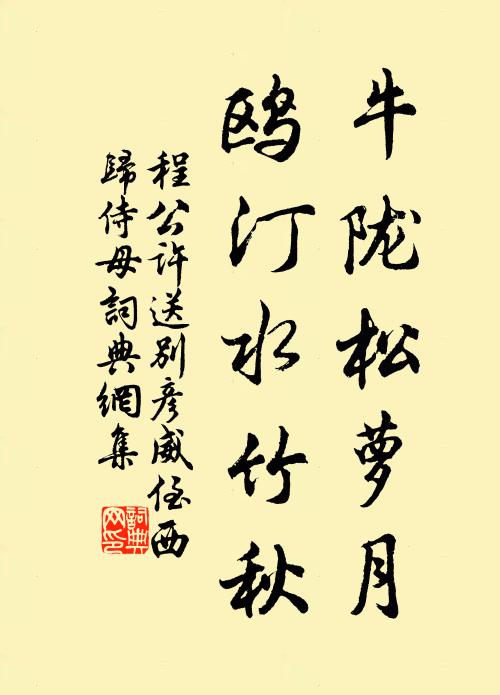 牛陇松萝月
鸥汀水竹秋
程公许送别彦威侄西
歸侍母詞典網集
詞典
网印